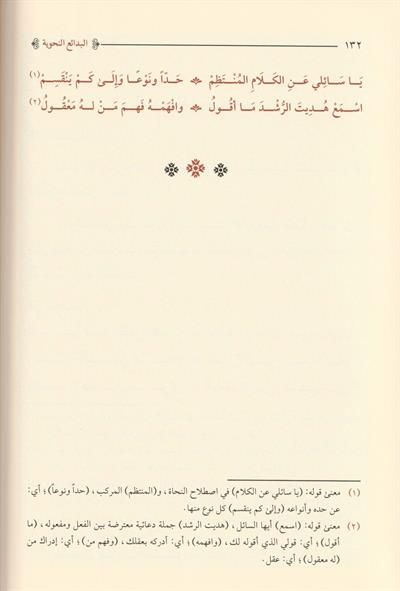 ١٣٢ البدائع النحوية
يَا سَائِلي عَنِ الكَلَامِ المُنْتَظِمْ حَدّاً ونَوْعًا وَإِلَىٰ كَمْ يَنْقَسِمْ(١)
اسْمَعْ هُدِيتَ الرُّشْدَ مَا أَقُولُ وافْهَمْهُ فَهمَ مَنْ لهُ مَعْقُولُ(٢)
(١) معنىٰ قوله: (يا سائلي عن الكلام) في اصطلاح النحاة، و(المنتظم) المركب، (حداً ونوعاً)؛ أي:
عن حده وأنواعه (وإلىٰ كم ينقسم) كل نوع منها.
(٢) معنىٰ قوله: (اسمع) أيها السائل، (هديت الرشد) جملة دعائية معترضة بين الفعل ومفعوله، (ما
أقول)؛ أي: قولي الذي أقوله لك، (وافهمه)؛ أي: أدركه بعقلك، (وفهم من)؛ أي: إدراك من
(له معقول)؛ أي: عقل.